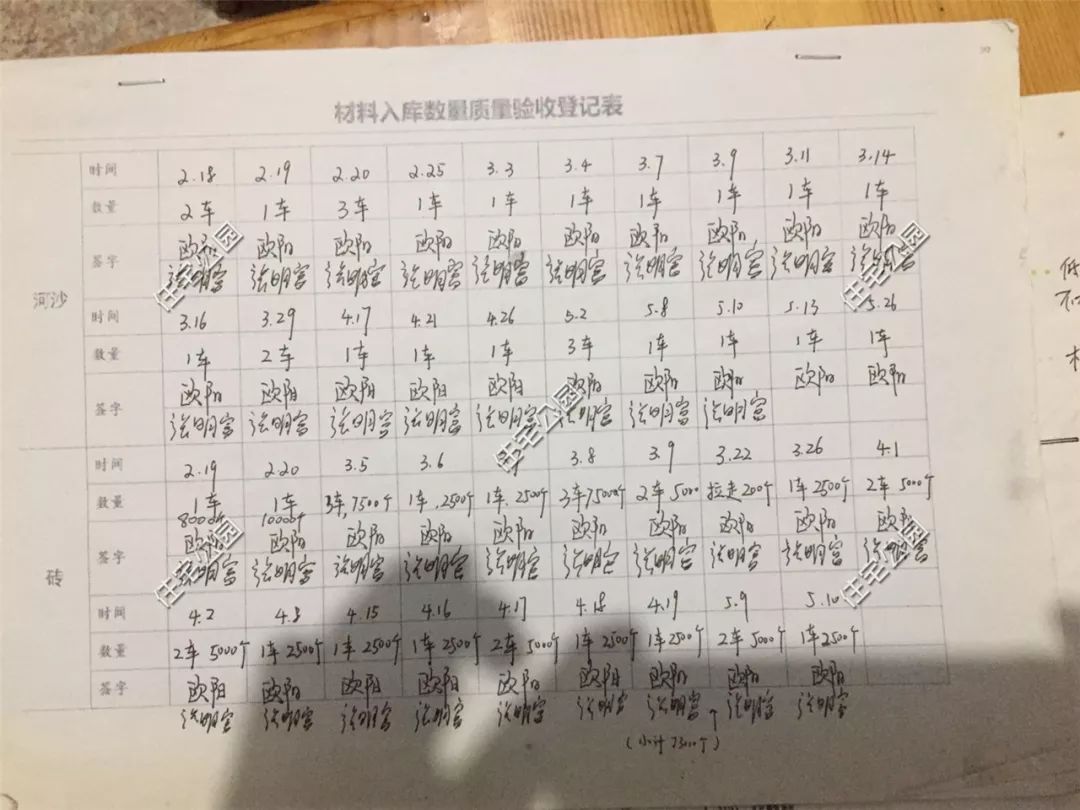 材料入库数量质量验收登记表
时间 2.18 2.19 2.20 2.25 3.3 3.4 3.7 3.9 3.11 3.14
数量 2车 1车 3车 1车 1车 1车 1车 1车 1车 1车
签字 欧阳 欧阳 欧阳 欧阳 欧阳 欧阳 欧阳 欧阳 欧阳 欧阳
张明宫 张明宫 张明宫 张明宫 张明宫 张明宫 张明宫 张明宫 张明宫 张明宫
河沙
时间 3.16 3.29 4.17 4.21 4.26 5.2 5.8 5.10 5.13 5.26
数量 1车 2车 1车 1车 1车 3车 1车 1车 1车 1车
签字 欧阳 欧阳 欧阳 欧阳 欧阳 欧阳 欧阳 欧阳 欧阳 欧阳
张明宫 张明宫 张明宫 张明宫 张明宫 张明宫 张明宫 张明宫
时间 2.19 2.20 3.5 3.6 3.8 3.9 3.22 3.26 4.1
数量 1车 8000个 1车 10000个 3车,7500个 1车,2500个 1车.2500个 3车7500个 2车5000 拉走200个 1车2500个 2车5000个
签字 欧阳 欧阳 欧阳 欧阳 欧阳 欧阳 欧阳 欧阳 欧阳 欧阳
张明宫 张明宫 张明宫 张明宫 张明宫 张明宫 张明宫 张明宫 张明宫 张明宫
砖
时间 4.2 4.8 4.15 4.16 4.17 4.18 4.19 5.9 5.10
数量 2车5000个 1车2500个 1车2500个 1车2500个 2车5000个 1车2500个 1车2500个 2车5000个 1车2500个
签字 欧阳 欧阳 欧阳 欧阳 欧阳 欧阳 欧阳 欧阳 欧阳
张明宫 张明宫 张明宫 张明宫 张明宫 张明宫 张明宫 张明宫 张明宫
(小计73000个)
住宅公园
住宅公园
住宅公园
住宅公园
住宅公园